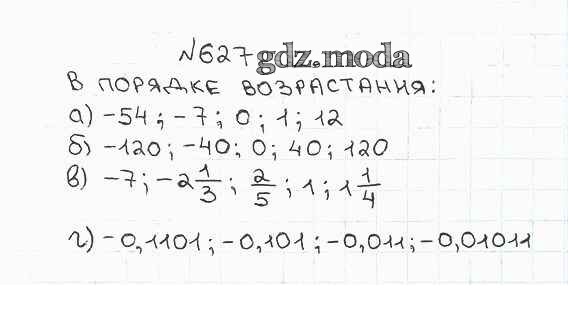 №627 gdz.moda
В ПОРЯДКЕ ВОЗРАСТАНИЯ:
а) -54 ; -7 ; 0 ; 1 ; 12
б) -120 ; -40 ; 0 ; 40 ; 120
в) -7 ; -2 1/3 ; 2/5 ; 1 ; 1 1/4
г) -0,1101 ; -0,101 ; -0,011 ; -0,01011